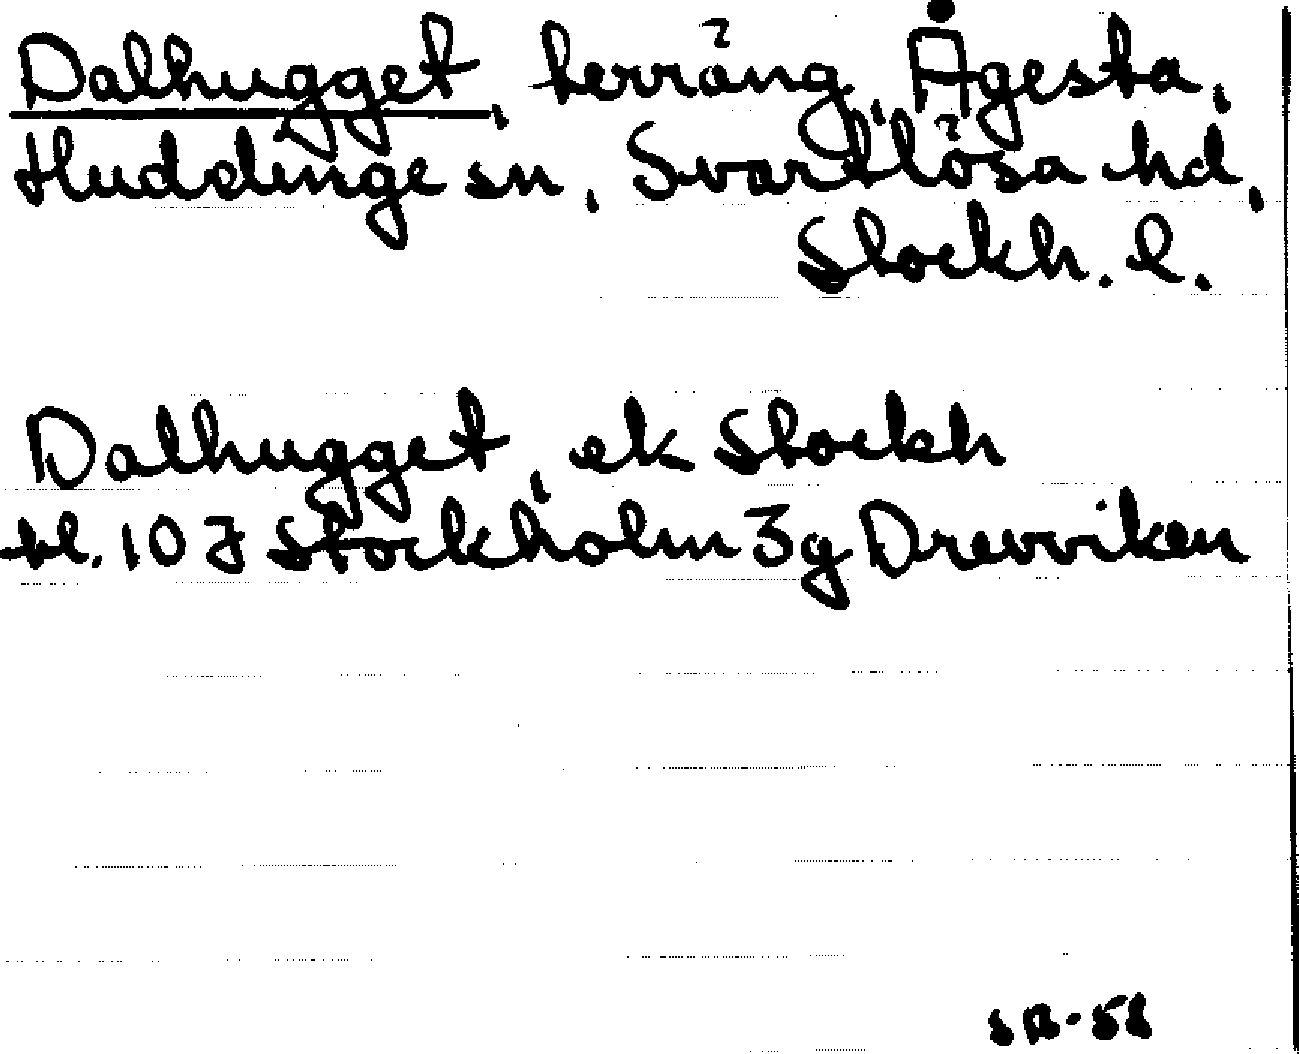 Dalhugget, terräng, Ågesta,
Huddinge sn, Svartlösa hd,
Stockh. l.
Dalhugget, ek Stockh
bl. 10 J Stockholm 3g Drevviken